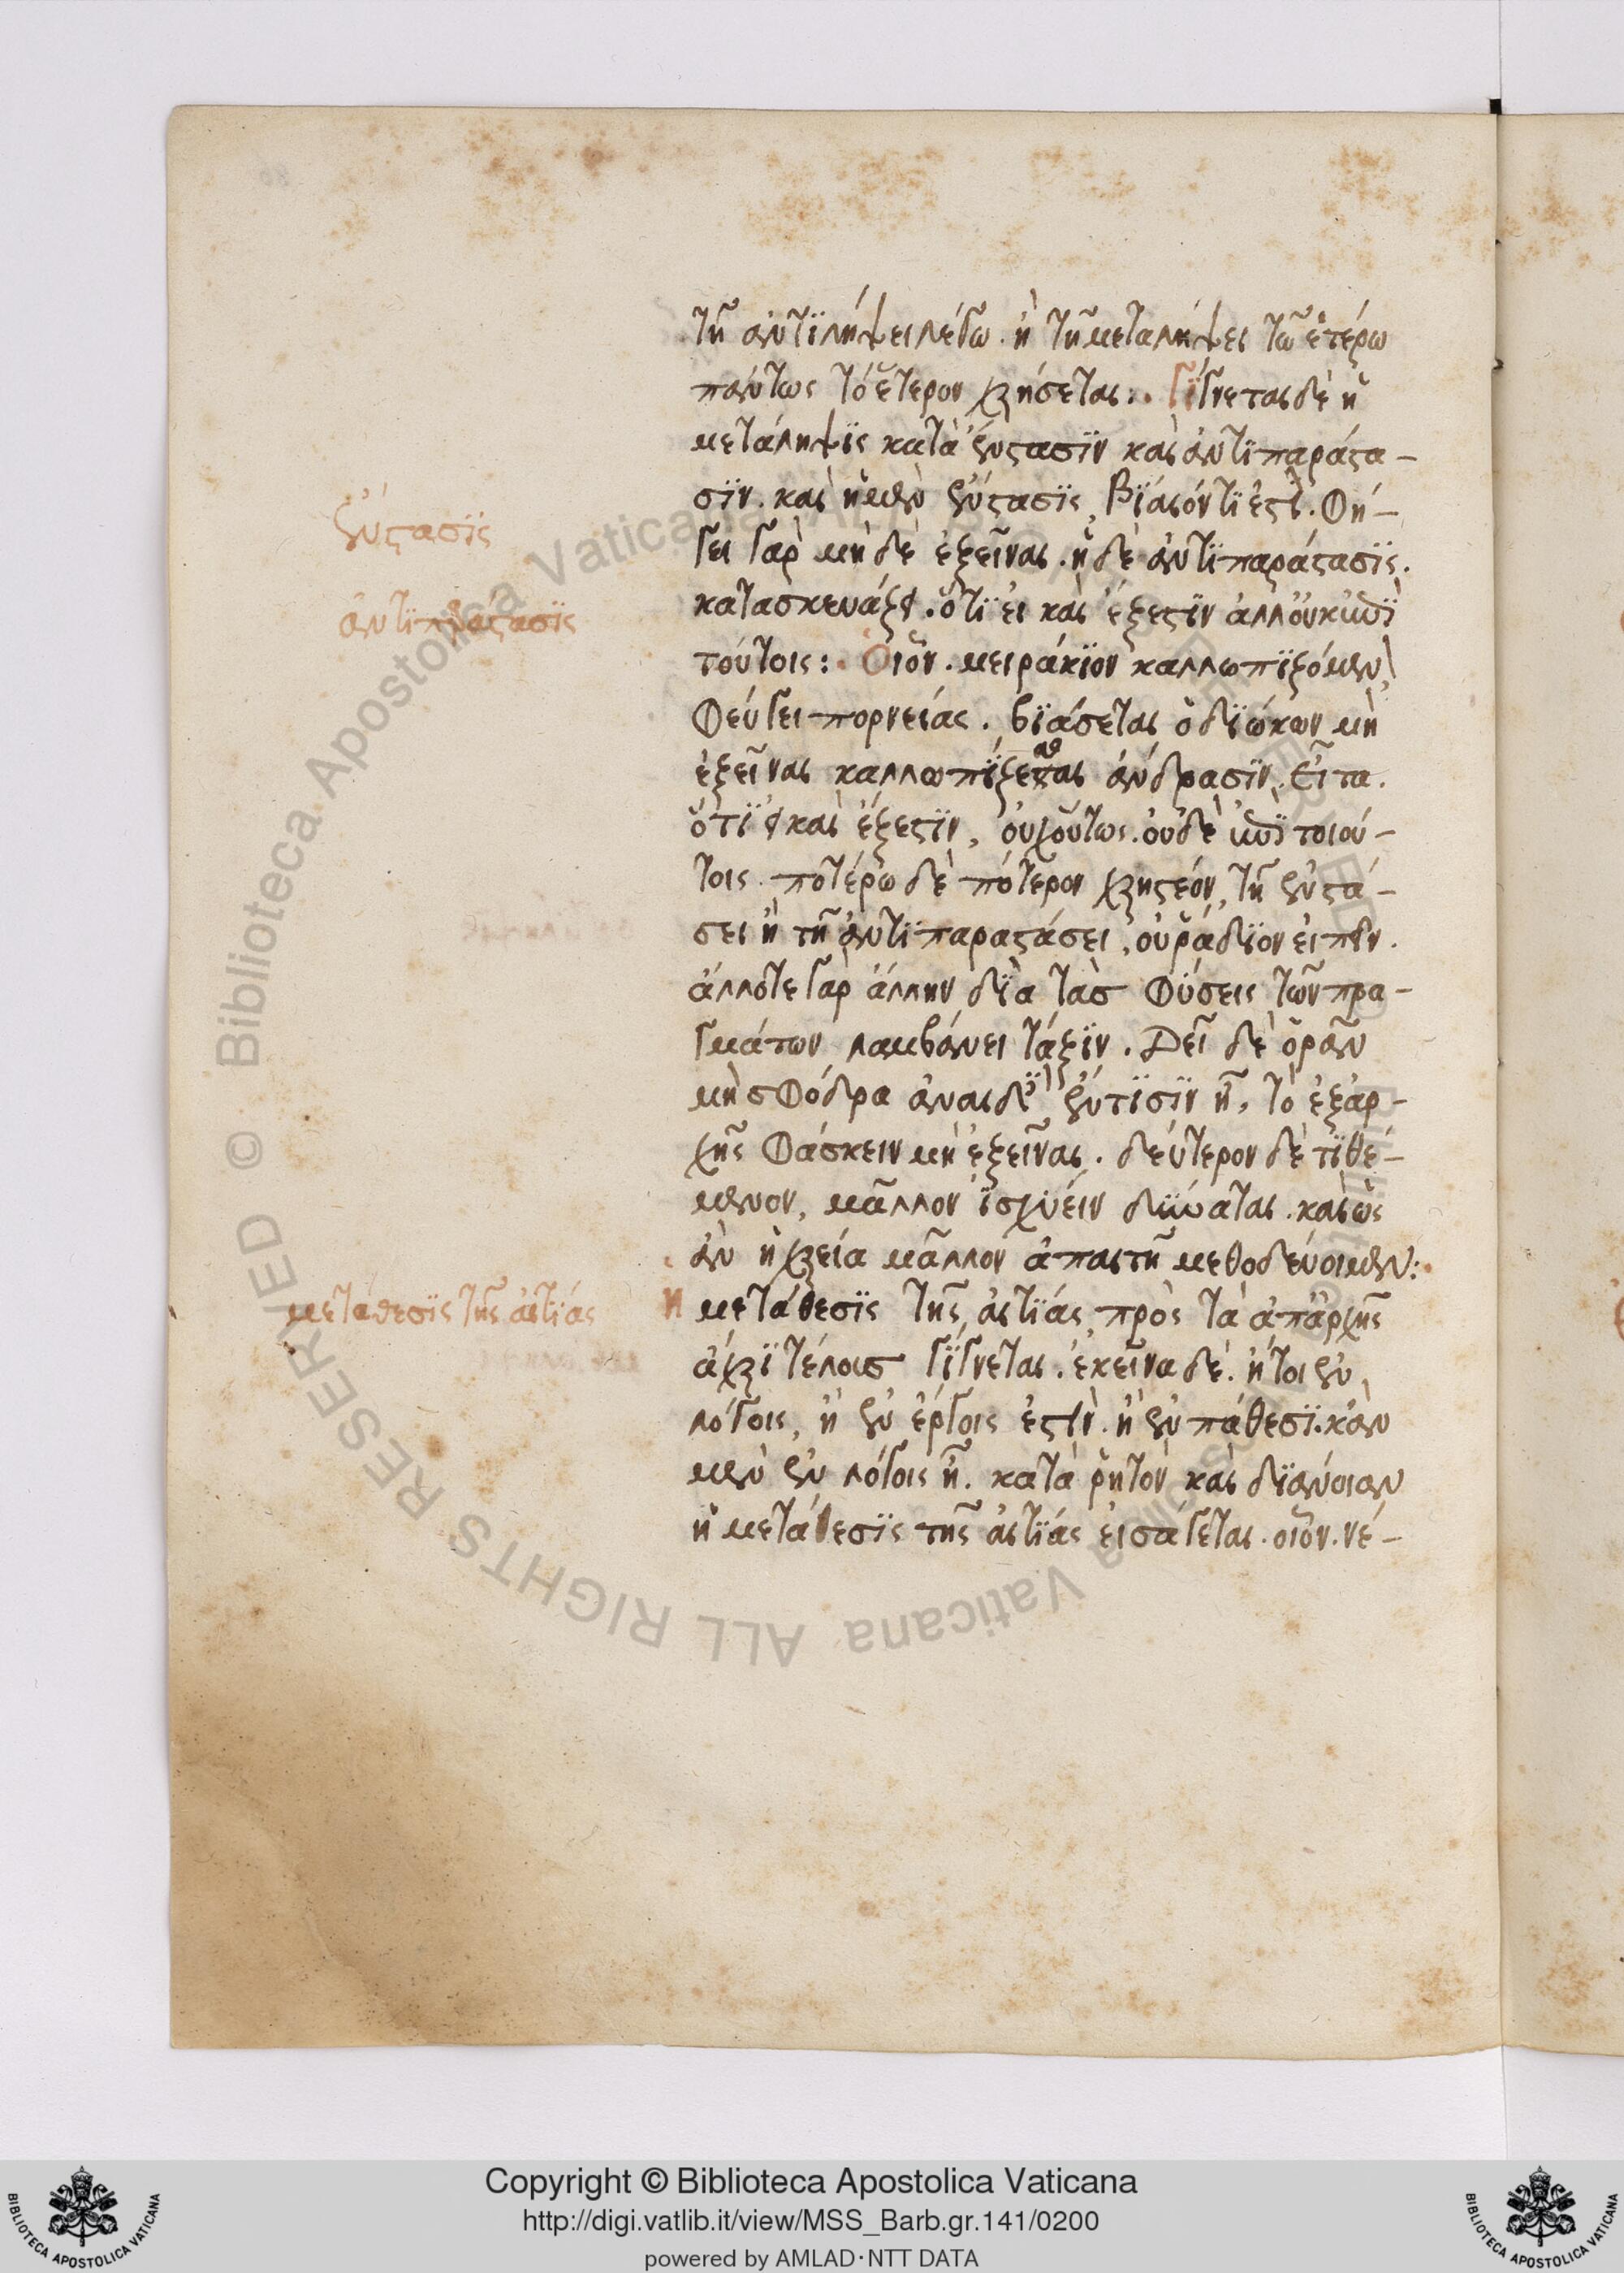 τῆ ἀντϊλήψει λέγω. ἢ τῆ μεταλήψει τῶ ἑτέρω
πάντως τὸ ἕτερον χρήσεται:. Γΐγνεται δὲ ἡ
μετάληψϊς κατὰ ἔνστασϊν καὶ ἀντιπαράστα-
σϊν. καὶ ἡ μὲν ἔνστασϊς, βϊαιόν τϊ ἐστϊ. φή-
σει γὰρ μὴ δὲ ἐξεῖναι. ἡ δὲ ἀντϊπαράστασϊς.
κατασκευάζει. ὅτϊ εἰ καὶ ἔξεστϊν ἀλλ οὐκ ἐπὶ
τούτοις:. Οἷον. μειράκϊον καλλωπϊζόμενον,
φεύγει πορνείας. βϊάσεται ὁ δϊώκων μὴ
ἐξεῖναι καλλωπΐζεσθαι ἀνδρασϊν. Εἶτα.
ὅτϊ εἰ καὶ ἔξεστϊν, οὐχ οὕτως. οὐδὲ ἐπὶ τοιού-
τοις. ποτέρω δὲ πότερον χρηστέον, τῆ ἐνστά-
σει ἢ τῆ ἀντϊπαραστάσει, οὐ ῥάδϊον εἰπεῖν.
ἄλλοτε γὰρ ἄλλην δϊὰ τὰσ φύσεις τῶν πρα-
γμάτων λαμβάνει τάξϊν. Δεῖ δὲ ὁρᾶν
μὴ σφόδρα ἀναιδὲς ἔντϊσϊν ῆ, τὸ ἐξαρ-
χῆς φάσκειν μὴ ἐξεῖναι. δεύτερον δὲ τϊθέ-
μενον, μᾶλλον ϊσχύειν δύναται. καὶ ὡς
ἂν ἡ χρεία μᾶλλον ἀπαιτῆ μεθοδεύοιμεν:.
Η μετάθεσϊς τῆς αἰτϊάς, πρὸς τὰ ἀπ ἀρχῆς
ἄχρϊ τέλουσ γΐγνεται. ἐκεῖνα δὲ. ἤτοι ἐν
λόγοις, ἢ ἐν ἔργοις ἐστϊν. ἢ ἐν πάθεσϊ. κἂν
μὲν ἐν λόγοις ῆ. κατὰ ῥητὸν καὶ δϊάνοιαν
ἡ μετάθεσϊς τῆς αἰτϊάς εἰσάγεται. οἷον. νέ-
ἔνστασϊς
ἀντϊπαράστασϊς
μετάθεσϊς τῆς αἰτϊάς
Copyright © Biblioteca Apostolica Vaticana
http://digi.vatlib.it/view/MSS_Barb.gr.141/0200
powered by AMLAD·NTT DATA
BIBLIOTECA APOSTOLICA VATICANA
BIBLIOTECA APOSTOLICA VATICANA
© Biblioteca Apostolica Vaticana ALL RIGHTS RESERVED